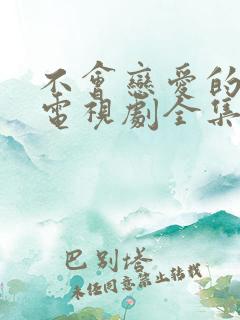 不會戀愛的
電視劇全集
巴別塔
未經同意禁止轉載